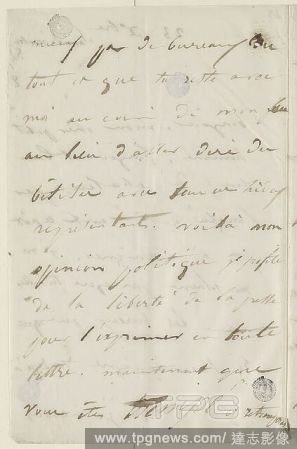 y a de bureau
tout ce que tu reste avec
moi au coin de mon feu
au lieu d'aller dire des
bêtises avec tous ces
représentants. voilà mon
opinion politique je profite
de la liberté de la presse
pour l'exprimer en toute
lettre. maintenant que
vous êtes
TPG
www.tpgnews.com / 達志影像